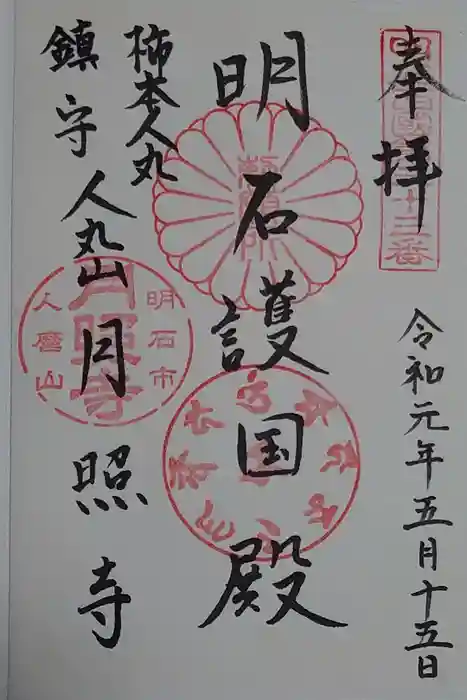 奉拝
令和元年五月十五日
明石護国殿
柿本人丸
鎮守
人丸山月照寺
明石市
月照寺
人麿山